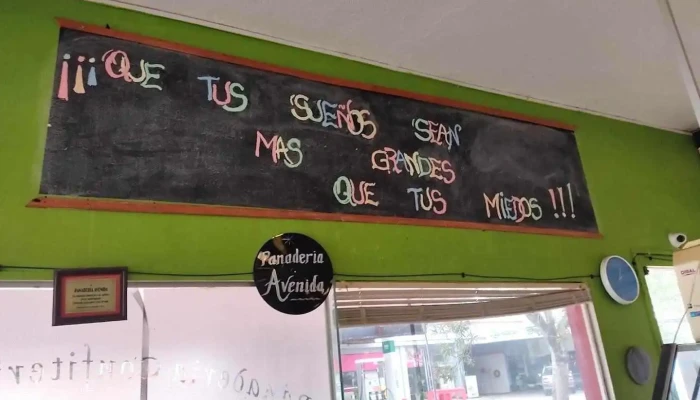 ¡¡¡QUE TUS SUEÑOS SEAN
MAS GRANDES
QUE TUS MIEDOS !!!
Panaderia
Avenida